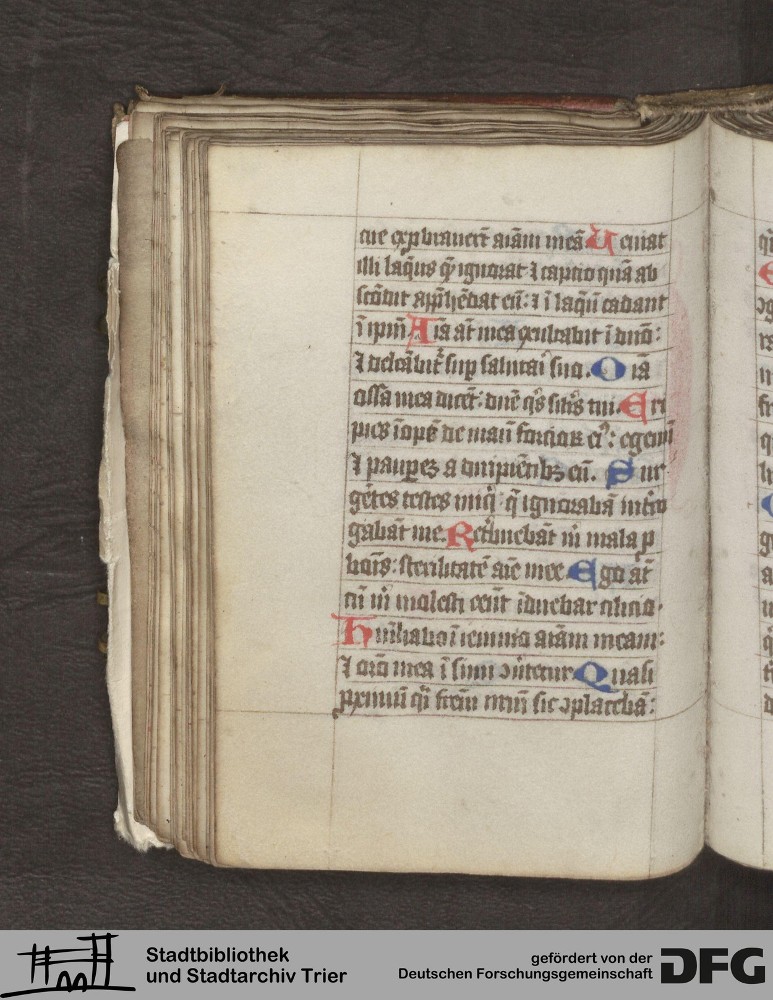 cue exprobrauert aiam mea Ueniat
illi laqus q ignorat ⁊ captio quā ab
scōdit apphēdat eū: ⁊ ī laqū cadant
ī ipm̄ Aīa at mea exultabit ī dn̄o:
⁊ delcābit sup salutai suo. Oīa
ossa mea dicēt: dn̄e qs silis tui Eri
piēs īopē de manu forciorꝫ eiꝰ: egenū
⁊ pauperē a diripientibꝫ eū. Sur
gētes testes iniqi q̄ ignorabā int̄ro
gabāt me. Retbuebāt m̄ mala p
bonis: sterilitatē aīe mee Ego at̄
cū m̄ molesti eēnt īduebar cilicio.
Humiliabā ī ieiunio aīam meam:
⁊ orō mea ī sinu ꝯuertetur Quasi
pximū qi frem nrm sic ꝯplacebā:
Stadtbibliothek
und Stadtarchiv Trier
gefördert von der
Deutschen Forschungsgemeinschaft
DFG